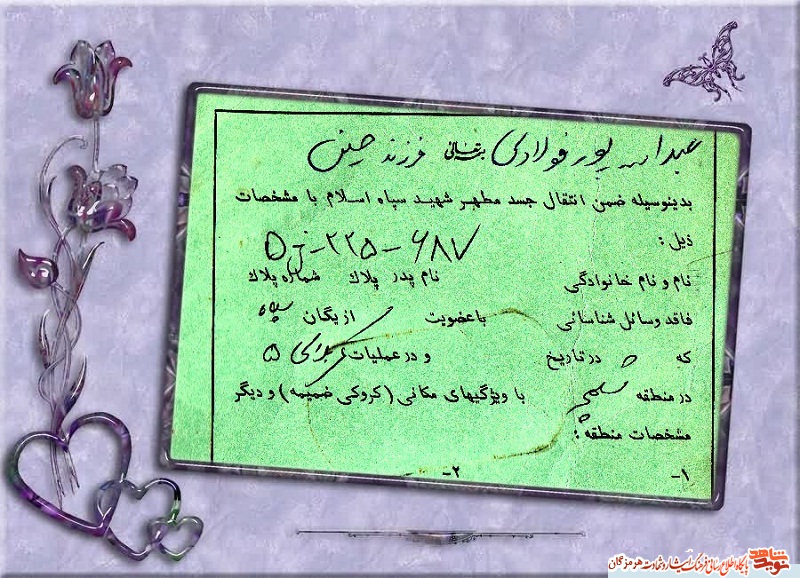 عبداله پور فولادی فرزند حسین
بدینوسیله ضمن انتقال جسد مطهر شهید سپاه اسلام با مشخصات
ذیل :
۶۸۷-۲۲۵-
نام و نام خانوادگی نام پدر پلاک شماره پلاك
فاقد وسائل شناسائی با عضویت از یگان سپاه
که در تاریخ و در عملیات کربلای ۵
در منطقه شلمچه با ویژگیهای مکانی (کروکی ضمیمه) و دیگر
مشخصات منطقه :
۱- ۲-
نوید شاهد پایگاه اطلاع رسانی فرهنگ ایثار و شهادت هرمزگان